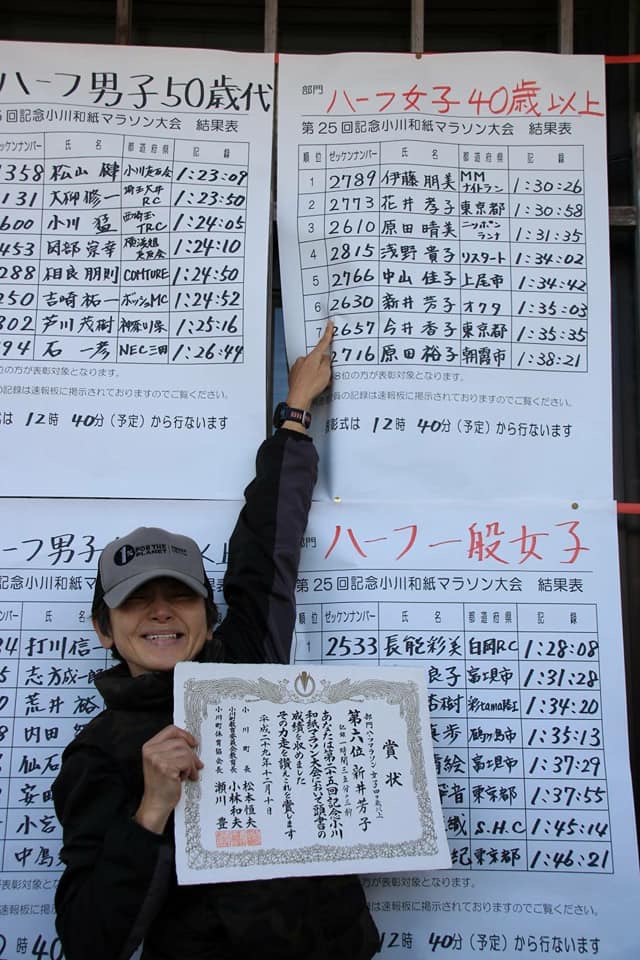 ハーフ男子50歳代
5回記念小川和紙マラソン大会 結果表
ゼッケンナンバー 氏 名 都道府県 記 録
1358 松山 健 小川走友会 1:23:09
131 大柳 修一 埼玉大井RC 1:23:50
600 小川 猛 西埼玉TRC 1:24:05
453 岡部 宗幸 1:24:10
288 相良 朋則 COMTURE 1:24:50
250 吉崎 祐一 ボッシュMC 1:24:52
802 芦川 茂樹 神奈川県 1:25:16
494 石 一彦 NEC三田 1:26:44
位の方が表彰対象となります。
の記録は速報板に掲示されておりますのでご覧ください。
式は 12時 40分(予定)から行ないます
部門 ハーフ女子40歳以上
第25回記念小川和紙マラソン大会 結果表
順位 ゼッケンナンバー 氏 名 都道府県 記 録
1 2789 伊藤 朋美 MMナイトラン 1:30:26
2 2773 花井 孝子 東京都 1:30:58
3 2610 原田 晴美 ニッポンランナ 1:31:35
4 2815 浅野 貴子 リスタート 1:34:02
5 2766 中山 佳子 上尾市 1:34:42
6 2630 新井 芳子 オクタ 1:35:03
7 2657 今井 香子 東京都 1:35:35
2716 原田 裕子 朝霞市 1:38:21
8位の方が表彰対象となります。
員の記録は速報板に掲示されておりますのでご覧ください。
表彰式は 12時 40分(予定)から行ないます
ーフ男子 以上
5回記念小川
ゼッケンナンバー 氏
34 打川信一
5 志方成一郎
0 荒井 裕
内田
仙石
安田
小宮
中島
が表彰対象とな
は速報板に掲示され
部門 ハーフ一般女子
第25回記念小川和紙マラソン大会 結果表
順位 ゼッケンナンバー 氏 名 都道府県 記 録
1 2533 長能彩美 白岡RC 1:28:08
良子 富士見市 1:31:28
杏樹 彩tama陸王 1:34:20
真歩 鳩ヶ島市 1:35:13
晴絵 富士見市 1:37:29
東京都 1:37:55
織 S.H.C 1:45:14
紀 東京都 1:46:21
が表彰対象となります。
速報板に掲示されておりますのでご覧ください。
12時 40分(予定)から行ないます
1% FOR THE PLANET
賞状
部門 ハーフマラソン女子四十歳以上
記録 一時間三五分〇三秒
第六位 新井 芳子
あなたは第二十五回記念小川
和紙マラソン大会において頭書の
成績を収めました
その力走を讃えこれを賞します
平成二十九年十二月十日
小川町長 松本恒夫
小川町教育委員会教育長 小林和夫
小川町体育協会長 瀬川 豊